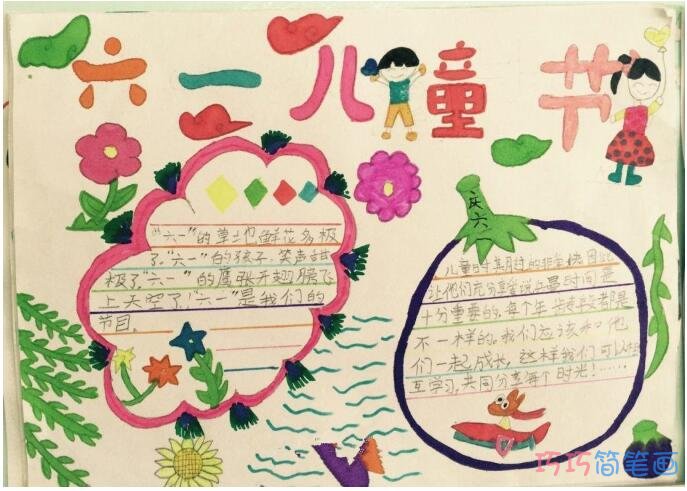 六一儿童节
"六一"的草地鲜花多极
了"六一"的孩子,笑声甜
极了"六一"的鹰张开翅膀飞
上天空了!"六一"是我们的
节目.
庆六一
儿童时期过的非常快因此
让他们充分享受说些是时间是
十分重要的.每个年
不一样的.我们应该和他
们一起成长,这样我们可以相
互学习,共同分享每个时光!……
巧巧简笔画